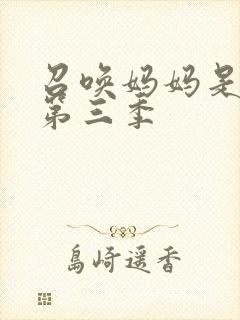 召唤妈妈是
第三季
島崎遥香